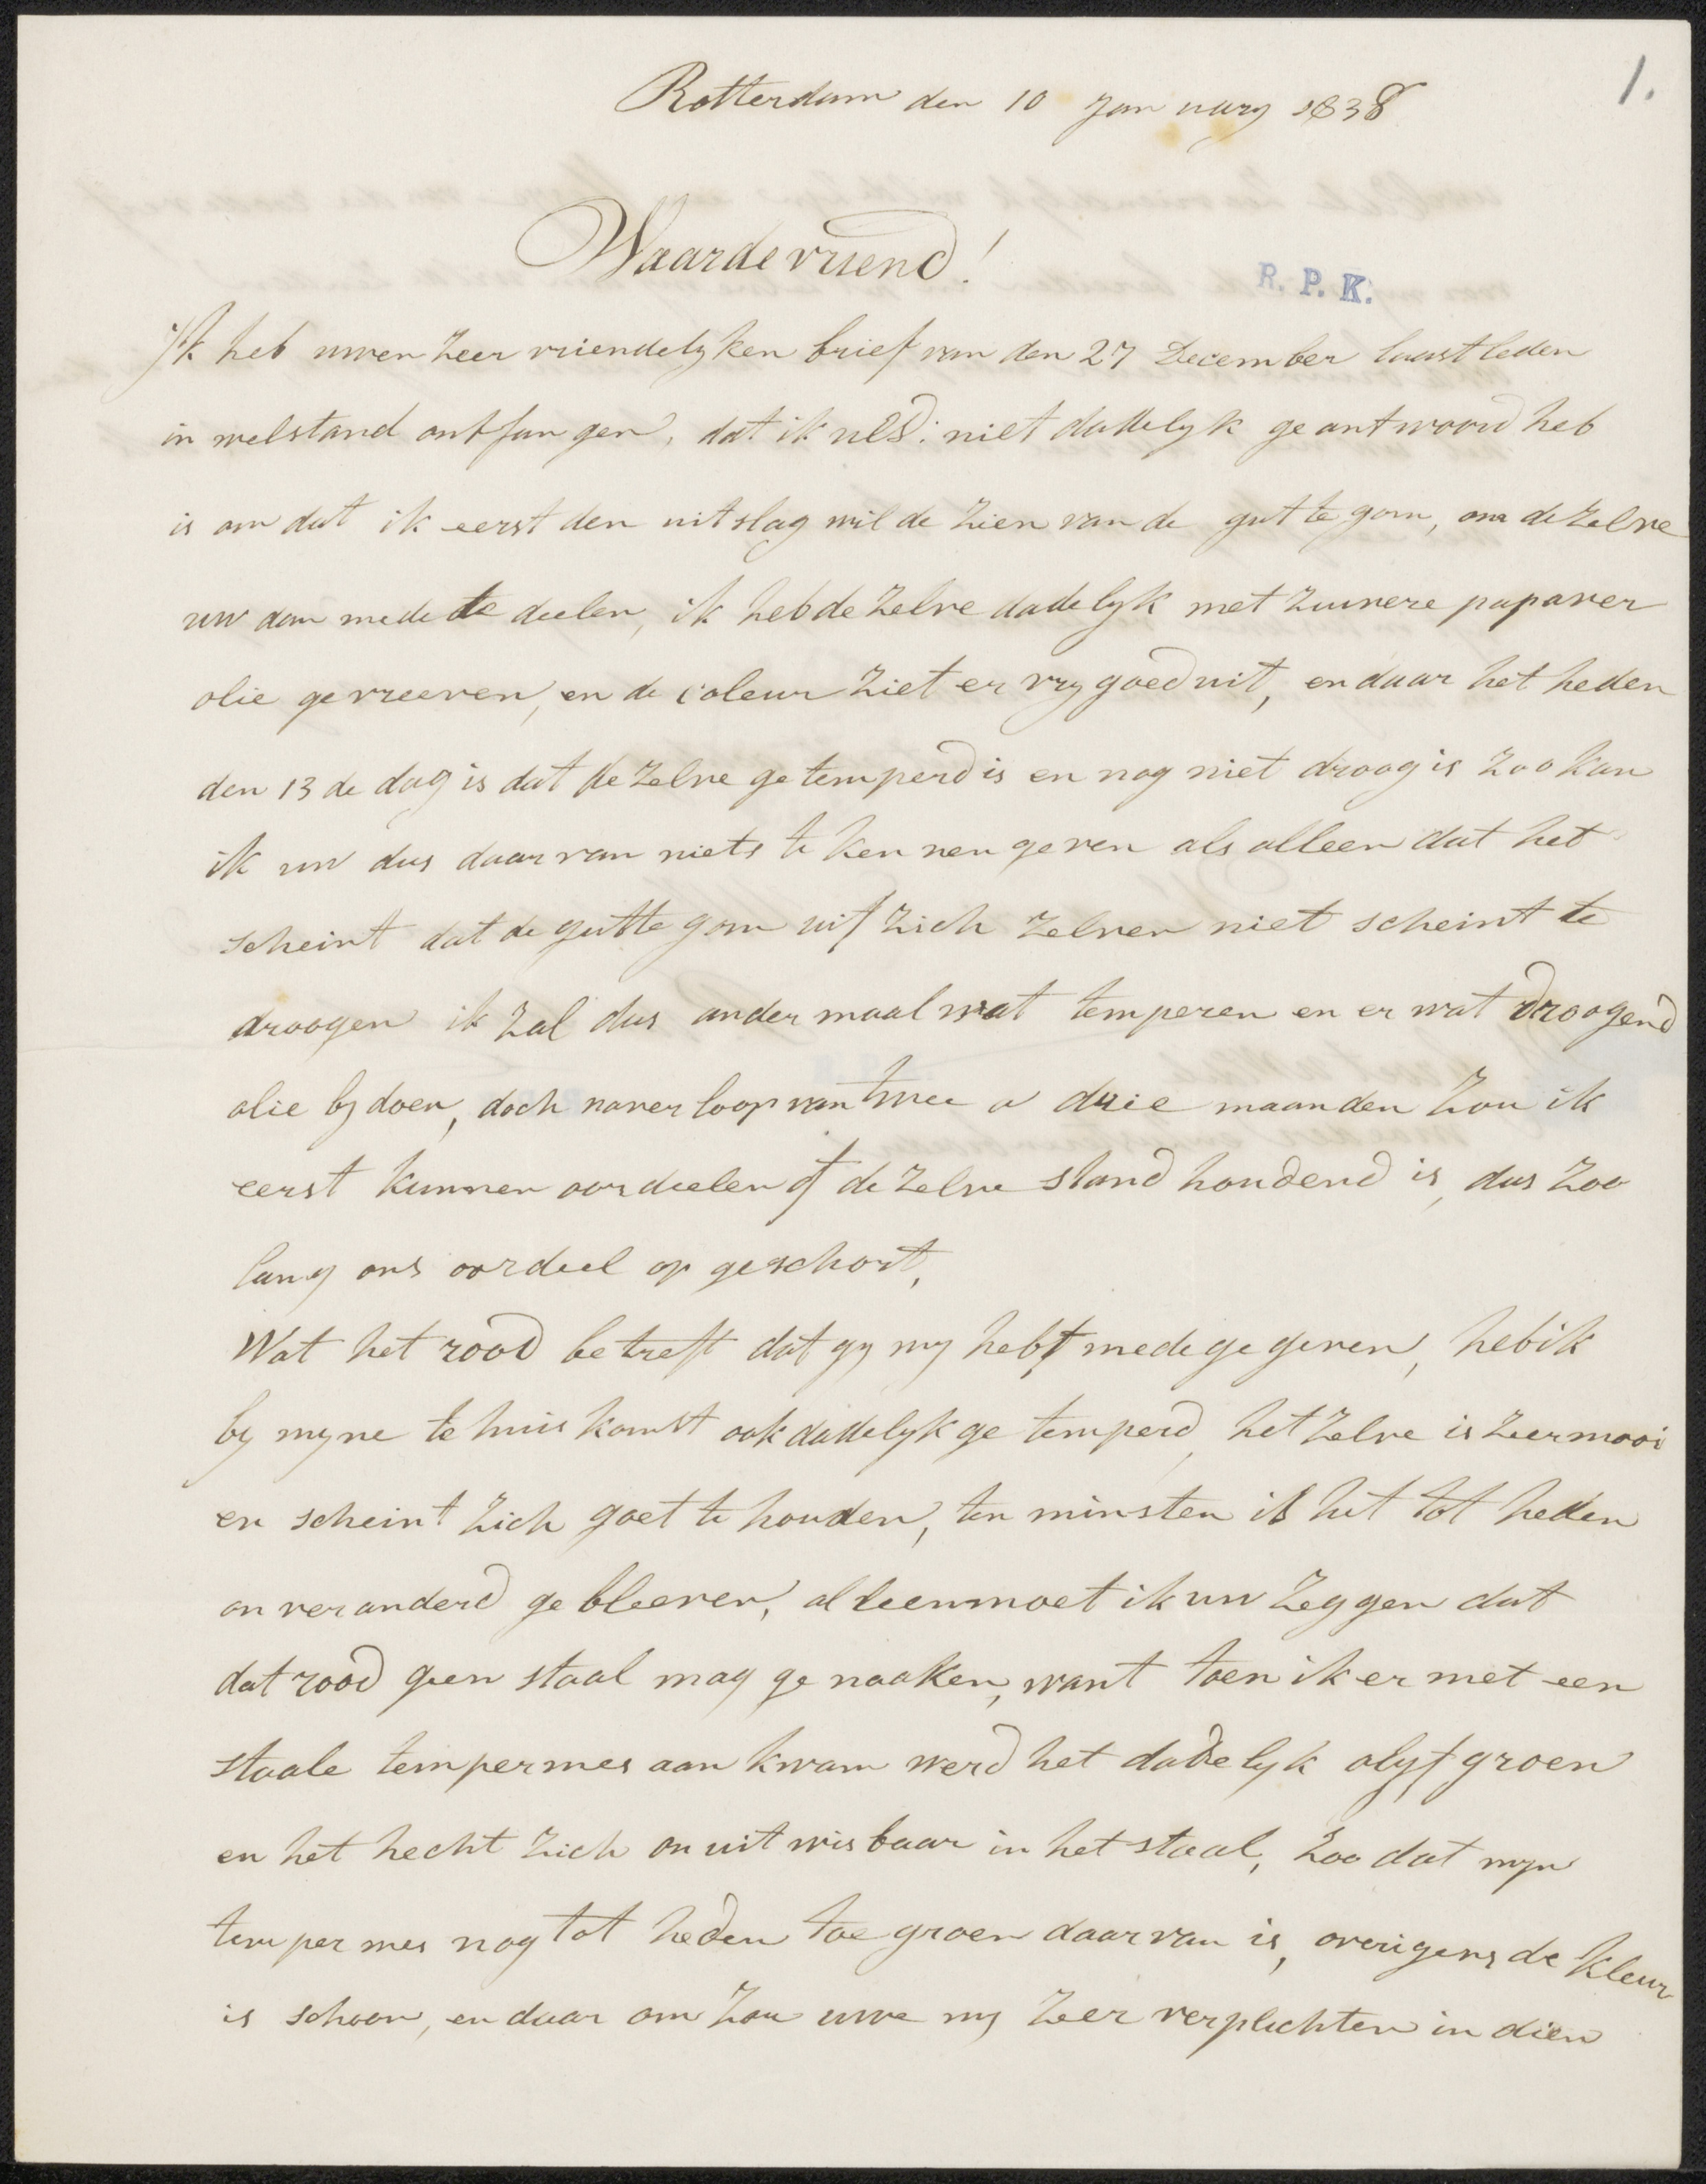 1.
Rotterdam den 10 January 1838
Waarde vriend!
R. P. K.
Ik heb uwen zeer vriendelyken brief van den 27 December laastleden
in welstand ontfangen, dat ik uEd: niet dadelyk geantwoord heb
is om dat ik eerst den uitslag wilde zien van de guttegom, om dezelve
uw dan mede te deelen, ik heb dezelve dadelyk met zuivere papaver
olie gevreeven, en de coleur ziet er vry goed uit, en daar het heden
den 13 de dag is dat dezelve getemperd is en nog niet droog is zoo kan
ik uw dus daarvan niets te kennen geven als alleen dat het
scheint dat de guttegom uit zich zelven niet scheint te
droogen ik zal dus andermaal wat temperen en er wat droogend
olie by doen, doch na verloop van twee a drie maanden zou ik
eerst kunnen oordeelen of dezelve stand houdend is, dus zoo
lang ons oordeel op geschort,
Wat het rood betreft dat gy my hebt medegegeven, heb ik
by myne te huis komst ook dadelyk getemperd, het zelve is zeer mooi
en scheint zich goet te houden, ten minsten is het tot heden
onveranderd gebleeven, alleen moet ik uw zeggen dat
dat rood geen staal mag genaaken, want toen ik er met een
staale tempermes aan kwam werd het dadelyk olyfgroen
en het hecht zich onuitwisbaar in het staal, zoo dat myn
tempermes nog tot heden toe groen daarvan is, overigens de kleur
is schoon, en daar om zou uwe my zeer verplichten indien